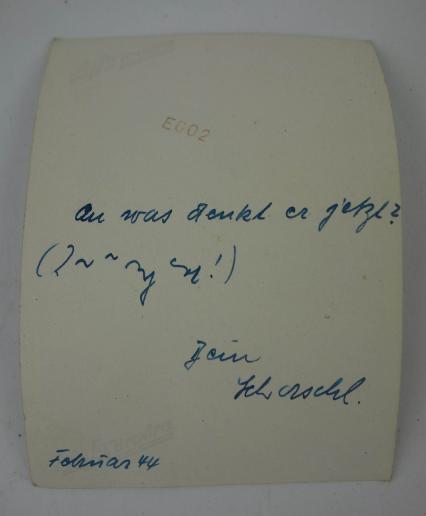 E602
An was denkt er jetzt?
Dein
Schorschl.
Februar 44